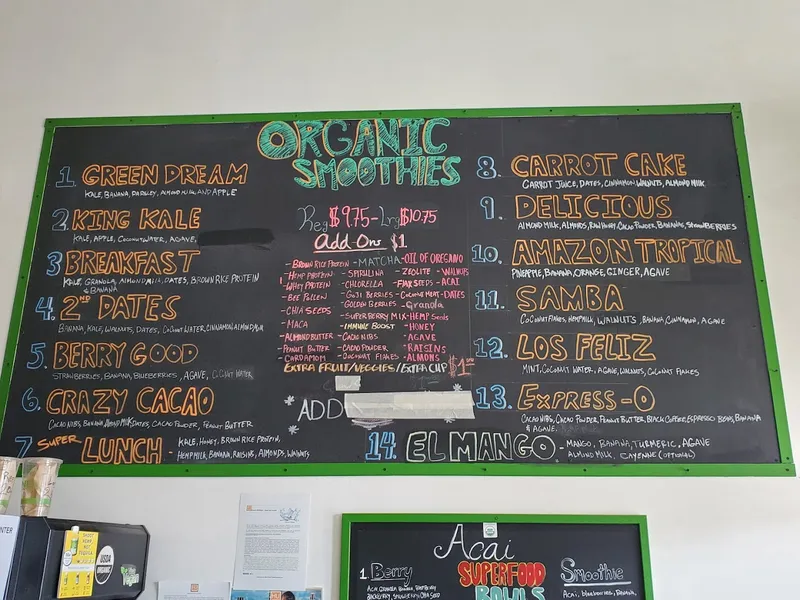 ORGANIC
SMOOTHIES
Reg $9.75 - Lrg $10.75
Add-Ons $1
- BROWN RICE PROTEIN - MATCHA - OIL OF OREGANO
- HEMP PROTEIN - SPIRULINA - ZEOLITE - WALNUTS
- WHEY PROTEIN - CHLORELLA - FLAX SEEDS - ACAI
- BEE POLLEN - GOJI BERRIES - COCONUT MEAT - DATES
- CHIA SEEDS - GOLDEN BERRIES - Granola
- SUPERBERRY MIX - HEMP Seeds
- MACA - IMMUNE BOOST - HONEY
- ALMOND BUTTER - CACAO NIBS - AGAVE
- PEANUT BUTTER - CACAO POWDER - RAISINS
- CARDAMOM - COCONUT FLAKES - ALMONS
EXTRA FRUIT/VEGGIES/EXTRA CUP $1
ADD
1. GREEN DREAM
KALE, BANANA, PARSLEY, ALMOND MILK AND APPLE
2. KING KALE
KALE, APPLE, COCONUT WATER, AGAVE,
3 BREAKFAST
KALE, GRANOLA, ALMOND MILK, DATES, BROWN RICE PROTEIN
& BANANA
4. 2ND DATES
BANANA, KALE, WALNUTS, DATES, COCONUT WATER, CINNAMON, ALMOND MILK
5. BERRY GOOD
STRAWBERRIES, BANANA, BLUEBERRIES, AGAVE, COCONUT WATER
6. CRAZY CACAO
CACAO NIBS, BANANA, ALMOND MILK, DATES, CACAO POWDER, PEANUT BUTTER
7 SUPER LUNCH - KALE, HONEY, BROWN RICE PROTEIN,
HEMP MILK, BANANA, RAISINS, ALMONDS, WALNUTS
8. CARROT CAKE
CARROT JUICE, DATES, CINNAMON, WALNUTS, ALMOND MILK
9. DELICIOUS
ALMOND MILK, ALMONDS, RAW HONEY, CACAO POWDER, BANANAS, STRAWBERRIES
10. AMAZON TROPICAL
PINEAPPLE, BANANA, ORANGE, GINGER, AGAVE
11. SAMBA
COCONUT FLAKES, HEMP MILK, WALNUTS, BANANA, CINNAMON, AGAVE
12. LOS FELIZ
MINT, COCONUT WATER, AGAVE, WALNUTS, COCONUT FLAKES
13. EXPRESS-O
CACAO NIBS, CACAO POWDER, PEANUT BUTTER, BLACK COFFEE, ESPRESSO BEANS, BANANA
& AGAVE
14. EL MANGO - MANGO, BANANA, TURMERIC, AGAVE
- ALMOND MILK, CAYENNE (OPTIONAL)
Acai
SUPERFOOD
BOWLS
1. Berry
ACAI, GRANOLA, BANANA, RASPBERRY
BLACKBERRY, STRAWBERRY, CHIA SEED
Smoothie
Acai, blueberries, BANANA,
USDA
ORGANIC